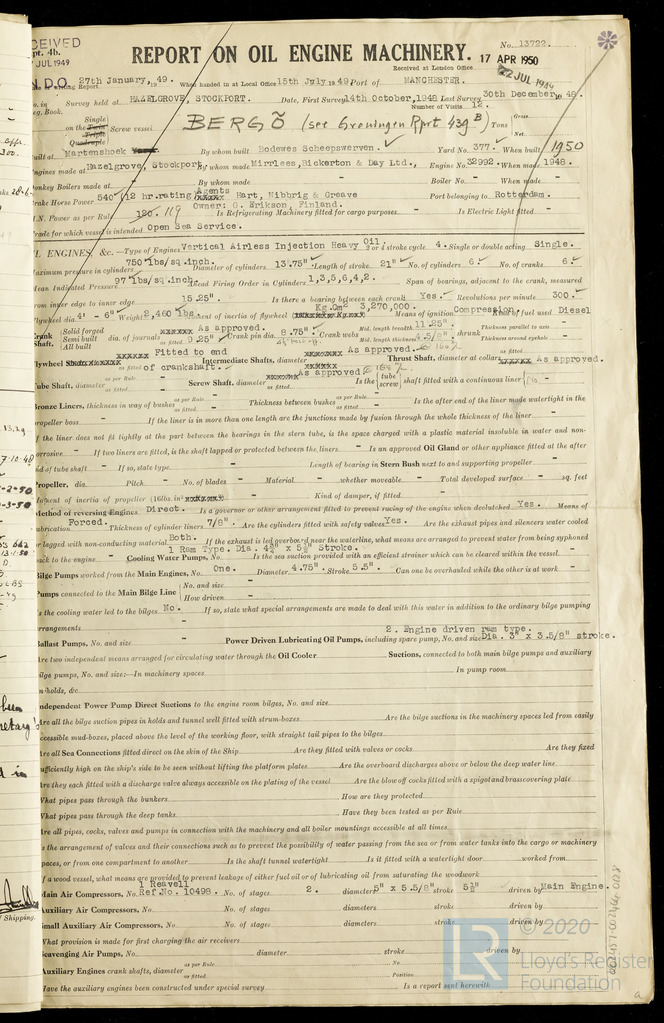 CEIVED
pt. 4b.
JUL 1949
N.D.O.
REPORT ON OIL ENGINE MACHINERY.
No. 13722.
17 APR 1950
Received at London Office
22 JUL 1949
27th January, 49. When handed in at Local Office 15th July 1949. Port of MANCHESTER.
No. in Survey held at HAZELGROVE, STOCKPORT. Date, First Survey 14th October, 1948 Last Survey 30th December, 1948.
Reg. Book. Number of Visits 12.
on the Single Twin Triple Quadruple Screw vessel BERGÖ (see Groningen Rprt 439B) Tons Gross Net
Built at Martenshoek By whom built Bodewes Scheepswerven. Yard No. 377. When built 1950
Engines made at Hazelgrove, Stockport. By whom made Mirrlees, Bickerton & Day Ltd., Engine No. 32992. When made 1948.
Donkey Boilers made at By whom made Boiler No. When made
Brake Horse Power 540 (12 hr.rating) Agents Hart, Nibbrig & Greave Port belonging to Rotterdam.
Owner: G. Erikson, Finland.
M.N. Power as per Rule 120. 119 Is Refrigerating Machinery fitted for cargo purposes Is Electric Light fitted
Trade for which vessel is intended Open Sea Service.
OIL ENGINES, &c.—Type of Engines Vertical Airless Injection Heavy Oil. 2 or 4 stroke cycle 4. Single or double acting Single.
Maximum pressure in cylinders 750 lbs/sq.inch. Diameter of cylinders 13.75" Length of stroke 21" No. of cylinders 6 No. of cranks 6
Mean Indicated Pressure 97 lbs/sq.inch. Ahead Firing Order in Cylinders 1,3,5,6,4,2. Span of bearings, adjacent to the crank, measured
from inner edge to inner edge 15.25" Is there a bearing between each crank Yes. Revolutions per minute 300.
Flywheel dia. 4' - 6" Weight 2,460 lbs. Moment of inertia of flywheel Kg.Cm² 3,270,000. Means of ignition Compression Kind of fuel used Diesel
Crank Shaft, Solid forged Semi built All built dia. of journals As approved. 9.25" Crank pin dia. 8.75" Crank webs Mid. length breadth 11.25" Mid. length thickness 4.5/8" shrunk Thickness parallel to axis Thickness around eyehole
Flywheel Shaft, diameter Fitted to end of crankshaft. Intermediate Shafts, diameter As approved. Thrust Shaft, diameter at collars As approved.
Tube Shaft, diameter as per Rule as fitted Screw Shaft, diameter As approved Is the tube screw shaft fitted with a continuous liner
Bronze Liners, thickness in way of bushes as per Rule as fitted Thickness between bushes as per Rule as fitted Is the after end of the liner made watertight in the
propeller boss If the liner is in more than one length are the junctions made by fusion through the whole thickness of the liner
If the liner does not fit tightly at the part between the bearings in the stern tube, is the space charged with a plastic material insoluble in water and non-
corrosive If two liners are fitted, is the shaft lapped or protected between the liners Is an approved Oil Gland or other appliance fitted at the after
end of tube shaft If so, state type Length of bearing in Stern Bush next to and supporting propeller
Propeller, dia. Pitch No. of blades Material whether moveable Total developed surface sq. feet
Moment of inertia of propeller (16lbs. in²) Kind of damper, if fitted
Method of reversing Engines Direct. Is a governor or other arrangement fitted to prevent racing of the engine when declutched Yes. Means of
lubrication Forced. Thickness of cylinder liners 7/8" Are the cylinders fitted with safety valves Yes. Are the exhaust pipes and silencers water cooled
or lagged with non-conducting material Both. If the exhaust is led overboard near the waterline, what means are arranged to prevent water from being syphoned
back to the engine Cooling Water Pumps, No. 1 Ram Type. Dia. 4¾" x 5½" Stroke. Is the sea suction provided with an efficient strainer which can be cleared within the vessel
Bilge Pumps worked from the Main Engines, No. One. Diameter 4.75" Stroke 5.5" Can one be overhauled while the other is at work
Pumps connected to the Main Bilge Line No. and size How driven
Is the cooling water led to the bilges No. If so, state what special arrangements are made to deal with this water in addition to the ordinary bilge pumping
arrangements
Ballast Pumps, No. and size Power Driven Lubricating Oil Pumps, including spare pump, No. and size 2. Engine driven ram type. Dia. 3" x 3.5/8" stroke.
Are two independent means arranged for circulating water through the Oil Cooler Suctions, connected to both main bilge pumps and auxiliary
bilge pumps, No. and size:—In machinery spaces In pump room
In holds, &c.
Independent Power Pump Direct Suctions to the engine room bilges, No. and size
Are all the bilge suction pipes in holds and tunnel well fitted with strum-boxes Are the bilge suctions in the machinery spaces led from easily
accessible mud-boxes, placed above the level of the working floor, with straight tail pipes to the bilges
Are all Sea Connections fitted direct on the skin of the Ship Are they fitted with valves or cocks Are they fixed
sufficiently high on the ship's side to be seen without lifting the platform plates Are the overboard discharges above or below the deep water line
Are they each fitted with a discharge valve always accessible on the plating of the vessel Are the blow off cocks fitted with a spigot and brass covering plate
What pipes pass through the bunkers How are they protected
What pipes pass through the deep tanks Have they been tested as per Rule
Are all pipes, cocks, valves and pumps in connection with the machinery and all boiler mountings accessible at all times
Is the arrangement of valves and their connections such as to prevent the possibility of water passing from the sea or from water tanks into the cargo or machinery
spaces, or from one compartment to another Is the shaft tunnel watertight Is it fitted with a watertight door worked from
If a wood vessel, what means are provided to prevent leakage of either fuel oil or of lubricating oil from saturating the woodwork
Main Air Compressors, No. 1 Reavell Ref.No. 10498. No. of stages 2. diameters 5" x 5.5/8" stroke 5½" driven by Main Engine.
Auxiliary Air Compressors, No. No. of stages diameters stroke driven by
Small Auxiliary Air Compressors, No. No. of stages diameters stroke driven by
What provision is made for first charging the air receivers
Scavenging Air Pumps, No. diameter stroke driven by
Auxiliary Engines crank shafts, diameter as per Rule as fitted No Position
Have the auxiliary engines been constructed under special survey Is a report sent herewith
© 2020
Lloyd's Register
Foundation
LR
of Shipping.